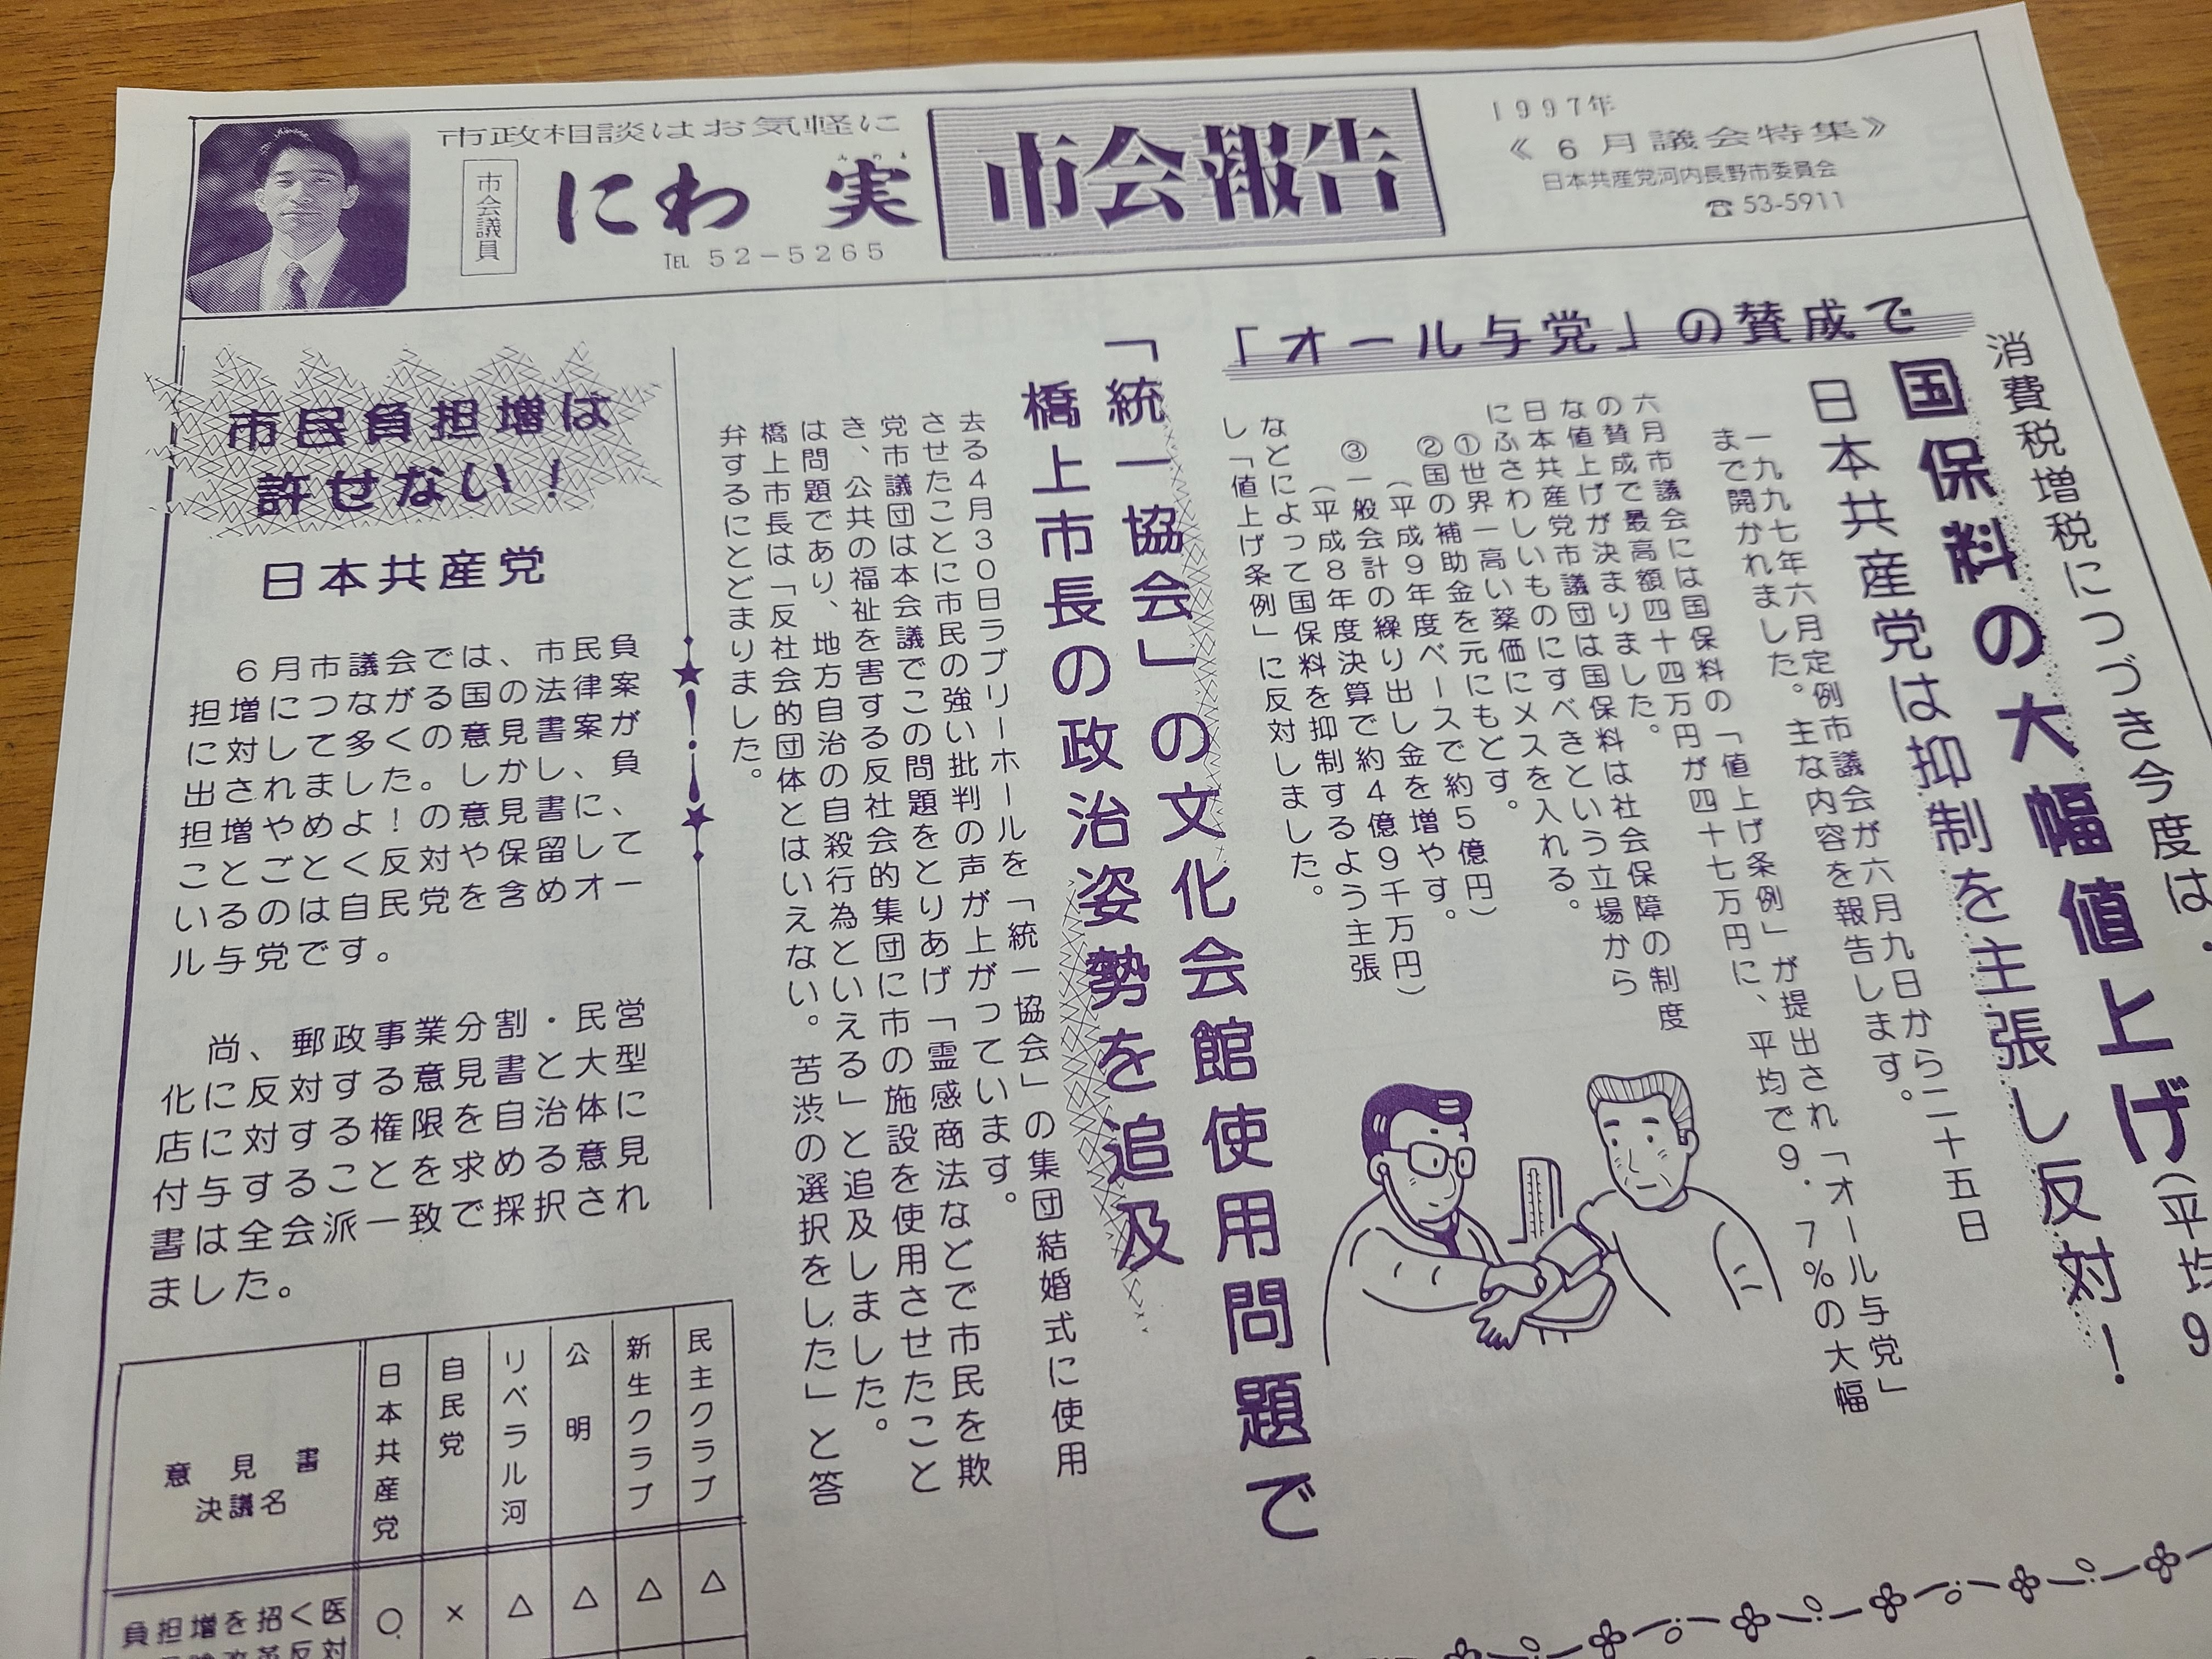 市政相談はお気軽に
市会議員
にわ 実
TEL 52-5265
市会報告
1997年
《6月議会特集》
日本共産党河内長野市委員会
☎ 53-5911
消費税増税につづき今度は
国保料の大幅値上げ(平均9
日本共産党は抑制を主張し反対!
「オール与党」の賛成で
一九九七年六月定例市議会が六月九日から二十五日
まで開かれました。主な内容を報告します。
六月市議会には国保料の「値上げ条例」が提出され「オール与党」
の賛成で最高額四十四万円が四十七万円に、平均で9.7%の大幅
な値上げが決まりました。
日本共産党市議団は国保料は社会保障の制度
にふさわしいものにすべきという立場から
①世界一高い薬価にメスを入れる。
②国の補助金を元にもどす。
(平成9年度ベースで約5億円)
③一般会計の繰り出し金を増やす。
(平成8年度決算で約4億9千万円)
などによって国保料を抑制するよう主張
し「値上げ条例」に反対しました。
「統一協会」の文化会館使用問題で
橋上市長の政治姿勢を追及
去る4月30日ラブリーホールを「統一協会」の集団結婚式に使用
させたことに市民の強い批判の声が上がっています。
党市議団は本会議でこの問題をとりあげ「霊感商法などで市民を欺
き、公共の福祉を害する反社会的集団に市の施設を使用させたこと
は問題であり、地方自治の自殺行為といえる」と追及しました。
橋上市長は「反社会的団体とはいえない。苦渋の選択をした」と答
弁するにとどまりました。
市民負担増は
許せない!
日本共産党
6月市議会では、市民負
担増につながる国の法律案
に対して多くの意見書案が
出されました。しかし、負
担増やめよ!の意見書に、
ことごとく反対や保留して
いるのは自民党を含めオー
ル与党です。
尚、郵政事業分割・民営
化に反対する意見書と大型
店に対する権限を自治体に
付与することを求める意見
書は全会派一致で採択され
ました。
意見書
決議名
日本共産党
自民党
リベラル河
公明
新生クラブ
民主クラブ
負担増を招く医
○ × △ △ △ △
改革反対